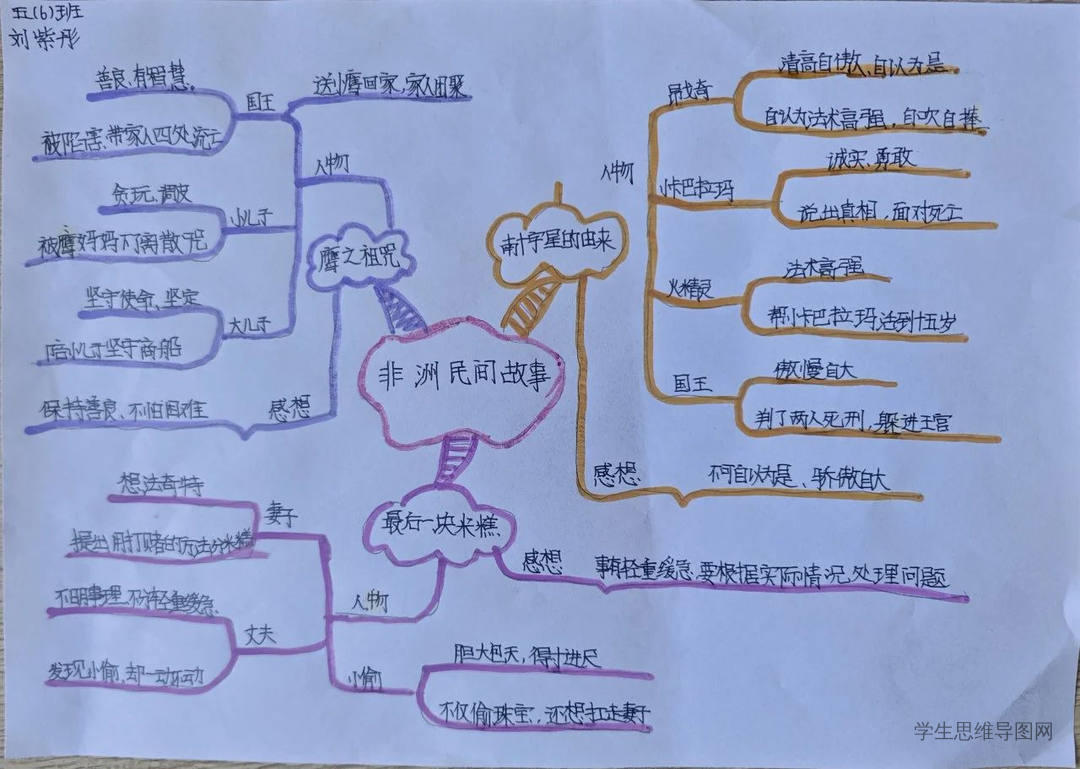 五(6)班
刘紫彤
非洲民间故事
鹰之祖咒
人物
国王
善良、有智慧。
被陷害、带家人四处流亡
送小鹰回家,家人团聚
小儿子
贪玩、调皮
被鹰妈妈下了离散咒
大儿子
坚守使命、坚定
陪小儿子坚守商船
感想
保持善良、不怕困难
南十字星的由来
人物
清高自傲、自认为是。
自认为法术高强,自吹自捧
卡巴拉玛
诚实、勇敢
说出真相,面对死亡
火精灵
法术高强
帮卡巴拉玛活到十五岁
国王
傲慢自大
判了两人死刑,躲进王宫
感想
不可自以为是、骄傲自大
最后一块米糕
人物
妻子
想法奇特
提出用打赌的方法分米糕
丈夫
不明事理、不分轻重缓急.
发现小偷,却一动不动
小偷
胆大包天,得寸进尺
不仅偷珠宝,还想扛走妻子
感想
事有轻重缓急.要根据实际情况处理问题
学生思维导图网